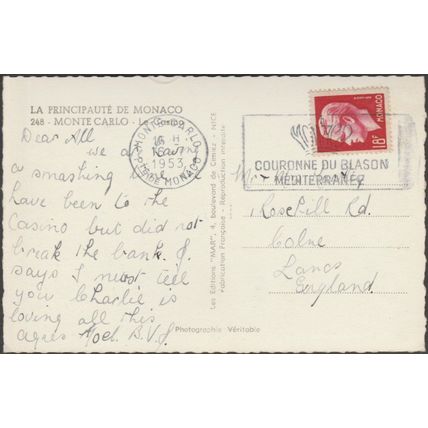 LA PRINCIPAUTÉ DE MONACO
248 - MONTE CARLO - Le Casino
Dear All
we are having
a smashing time
have been to the
Casino but did not
break the bank. J.
says I must tell
you Charlie is
loving all this
Agnes Noel. B.V.J.
MONTE-CARLO
16 H
16-7
1953
PTE DE MONACO
Les Editions "MAR", 4, boulevard de Cimiez - NICE
Fabrication Française - Reproduction interdite
Photographie Véritable
MONACO
18F
COURONNE DU BLASON
MÉDITERRANÉEN
1 Rosehill Rd.
Colne
Lancs
England